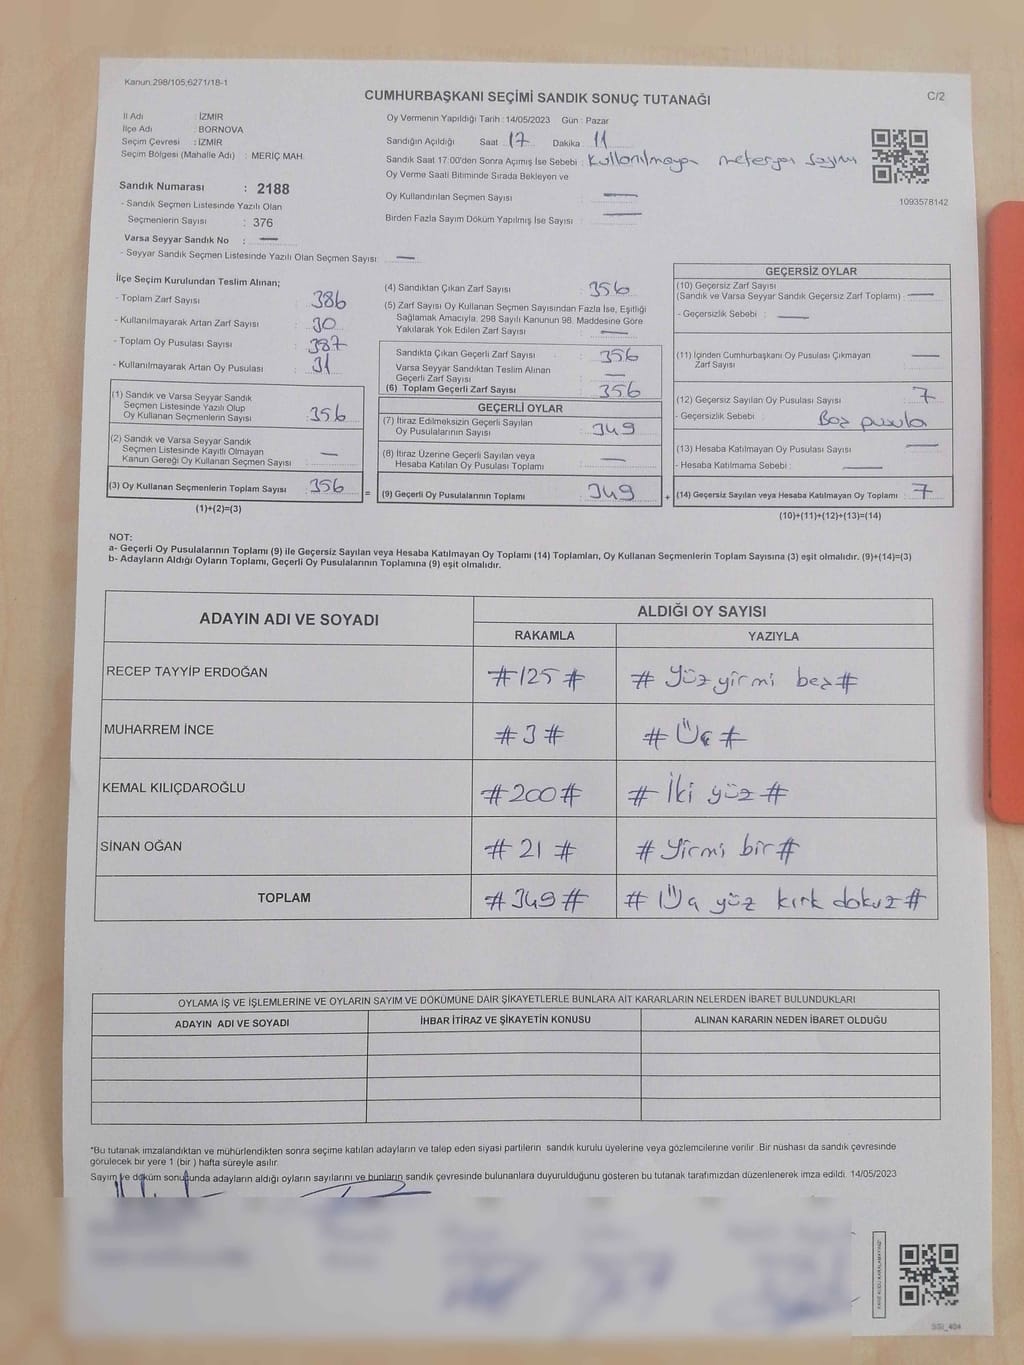 Kanun:298/105;6271/18-1
CUMHURBAŞKANI SEÇİMİ SANDIK SONUÇ TUTANAĞI
C/2
İl Adı : İZMİR
İlçe Adı : BORNOVA
Seçim Çevresi : İZMİR
Seçim Bölgesi (Mahalle Adı) : MERİÇ MAH.
Sandık Numarası : 2188
- Sandık Seçmen Listesinde Yazılı Olan
Seçmenlerin Sayısı : 376
Varsa Seyyar Sandık No : —
- Seyyar Sandık Seçmen Listesinde Yazılı Olan Seçmen Sayısı : —
Oy Vermenin Yapıldığı Tarih : 14/05/2023 Gün : Pazar
Sandığın Açıldığı Saat : 17 Dakika : 11
Sandık Saat 17.00'den Sonra Açımış İse Sebebi : Kullanılmayan sayımı
Oy Verme Saati Bitiminde Sırada Bekleyen ve
Oy Kullandırılan Seçmen Sayısı : —
Birden Fazla Sayım Döküm Yapılmış İse Sayısı : —
1093578142
İlçe Seçim Kurulundan Teslim Alınan;
- Toplam Zarf Sayısı : 386
- Kullanılmayarak Artan Zarf Sayısı : 30
- Toplam Oy Pusulası Sayısı : 387
- Kullanılmayarak Artan Oy Pusulası : 31
(1) Sandık ve Varsa Seyyar Sandık
Seçmen Listesinde Yazılı Olup
Oy Kullanan Seçmenlerin Sayısı : 356
(2) Sandık ve Varsa Seyyar Sandık
Seçmen Listesinde Kayıtlı Olmayan
Kanun Gereği Oy Kullanan Seçmen Sayısı : —
(3) Oy Kullanan Seçmenlerin Toplam Sayısı : 356
(1)+(2)=(3)
(4) Sandıktan Çıkan Zarf Sayısı : 356
(5) Zarf Sayısı Oy Kullanan Seçmen Sayısından Fazla İse, Eşitliği
Sağlamak Amacıyla, 298 Sayılı Kanunun 98. Maddesine Göre
Yakılarak Yok Edilen Zarf Sayısı : —
Sandıkta Çıkan Geçerli Zarf Sayısı : 356
Varsa Seyyar Sandıktan Teslim Alınan
Geçerli Zarf Sayısı : —
(6) Toplam Geçerli Zarf Sayısı : 356
GEÇERLİ OYLAR
(7) İtiraz Edilmeksizin Geçerli Sayılan
Oy Pusulalarının Sayısı : 349
(8) İtiraz Üzerine Geçerli Sayılan veya
Hesaba Katılan Oy Pusulası Toplamı : —
= (9) Geçerli Oy Pusulalarının Toplamı : 349
GEÇERSİZ OYLAR
(10) Geçersiz Zarf Sayısı
(Sandık ve Varsa Seyyar Sandık Geçersiz Zarf Toplamı) : —
- Geçersizlik Sebebi : —
(11) İçinden Cumhurbaşkanı Oy Pusulası Çıkmayan
Zarf Sayısı : —
(12) Geçersiz Sayılan Oy Pusulası Sayısı : 7
- Geçersizlik Sebebi : Boş pusula
(13) Hesaba Katılmayan Oy Pusulası Sayısı : —
- Hesaba Katılmama Sebebi : —
+ (14) Geçersiz Sayılan veya Hesaba Katılmayan Oy Toplamı : 7
(10)+(11)+(12)+(13)=(14)
NOT:
a- Geçerli Oy Pusulalarının Toplamı (9) ile Geçersiz Sayılan veya Hesaba Katılmayan Oy Toplamı (14) Toplamları, Oy Kullanan Seçmenlerin Toplam Sayısına (3) eşit olmalıdır. (9)+(14)=(3)
b- Adayların Aldığı Oyların Toplamı, Geçerli Oy Pusulalarının Toplamına (9) eşit olmalıdır.
ADAYIN ADI VE SOYADI
ALDIĞI OY SAYISI
RAKAMLA YAZIYLA
RECEP TAYYİP ERDOĞAN #125# #Yüz yirmi beş#
MUHARREM İNCE #3# #Üç#
KEMAL KILIÇDAROĞLU #200# #İki yüz#
SİNAN OĞAN #21# #Yirmi bir#
TOPLAM #349# #Üç yüz kırk dokuz#
OYLAMA İŞ VE İŞLEMLERİNE VE OYLARIN SAYIM VE DÖKÜMÜNE DAİR ŞİKAYETLERLE BUNLARA AİT KARARLARIN NELERDEN İBARET BULUNDUKLARI
ADAYIN ADI VE SOYADI İHBAR İTİRAZ VE ŞİKAYETİN KONUSU ALINAN KARARIN NEDEN İBARET OLDUĞU
*Bu tutanak imzalandıktan ve mühürlendikten sonra seçime katılan adayların ve talep eden siyasi partilerin sandık kurulu üyelerine veya gözlemcilerine verilir. Bir nüshası da sandık çevresinde
görülecek bir yere 1 (bir) hafta süreyle asılır.
Sayım ve döküm sonuçunda adayların aldığı oyların sayılarını ve bunların sandık çevresinde bulunanlara duyurulduğunu gösteren bu tutanak tarafımızdan düzenlenerek imza edildi. 14/05/2023